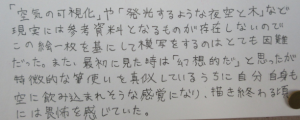 「空気の可視化」や「発光するような夜空と木」など
現実には参考資料となるものが存在しないので
この絵一枚を基にして模写をするのはとても困難
だった。また、最初に見た時は「幻想的だ」と思ったが
特徴的な筆使いを真似しているうちに自分自身も
空に飲み込まれそうな感覚になり、描き終わる頃
には畏怖を感じていた。